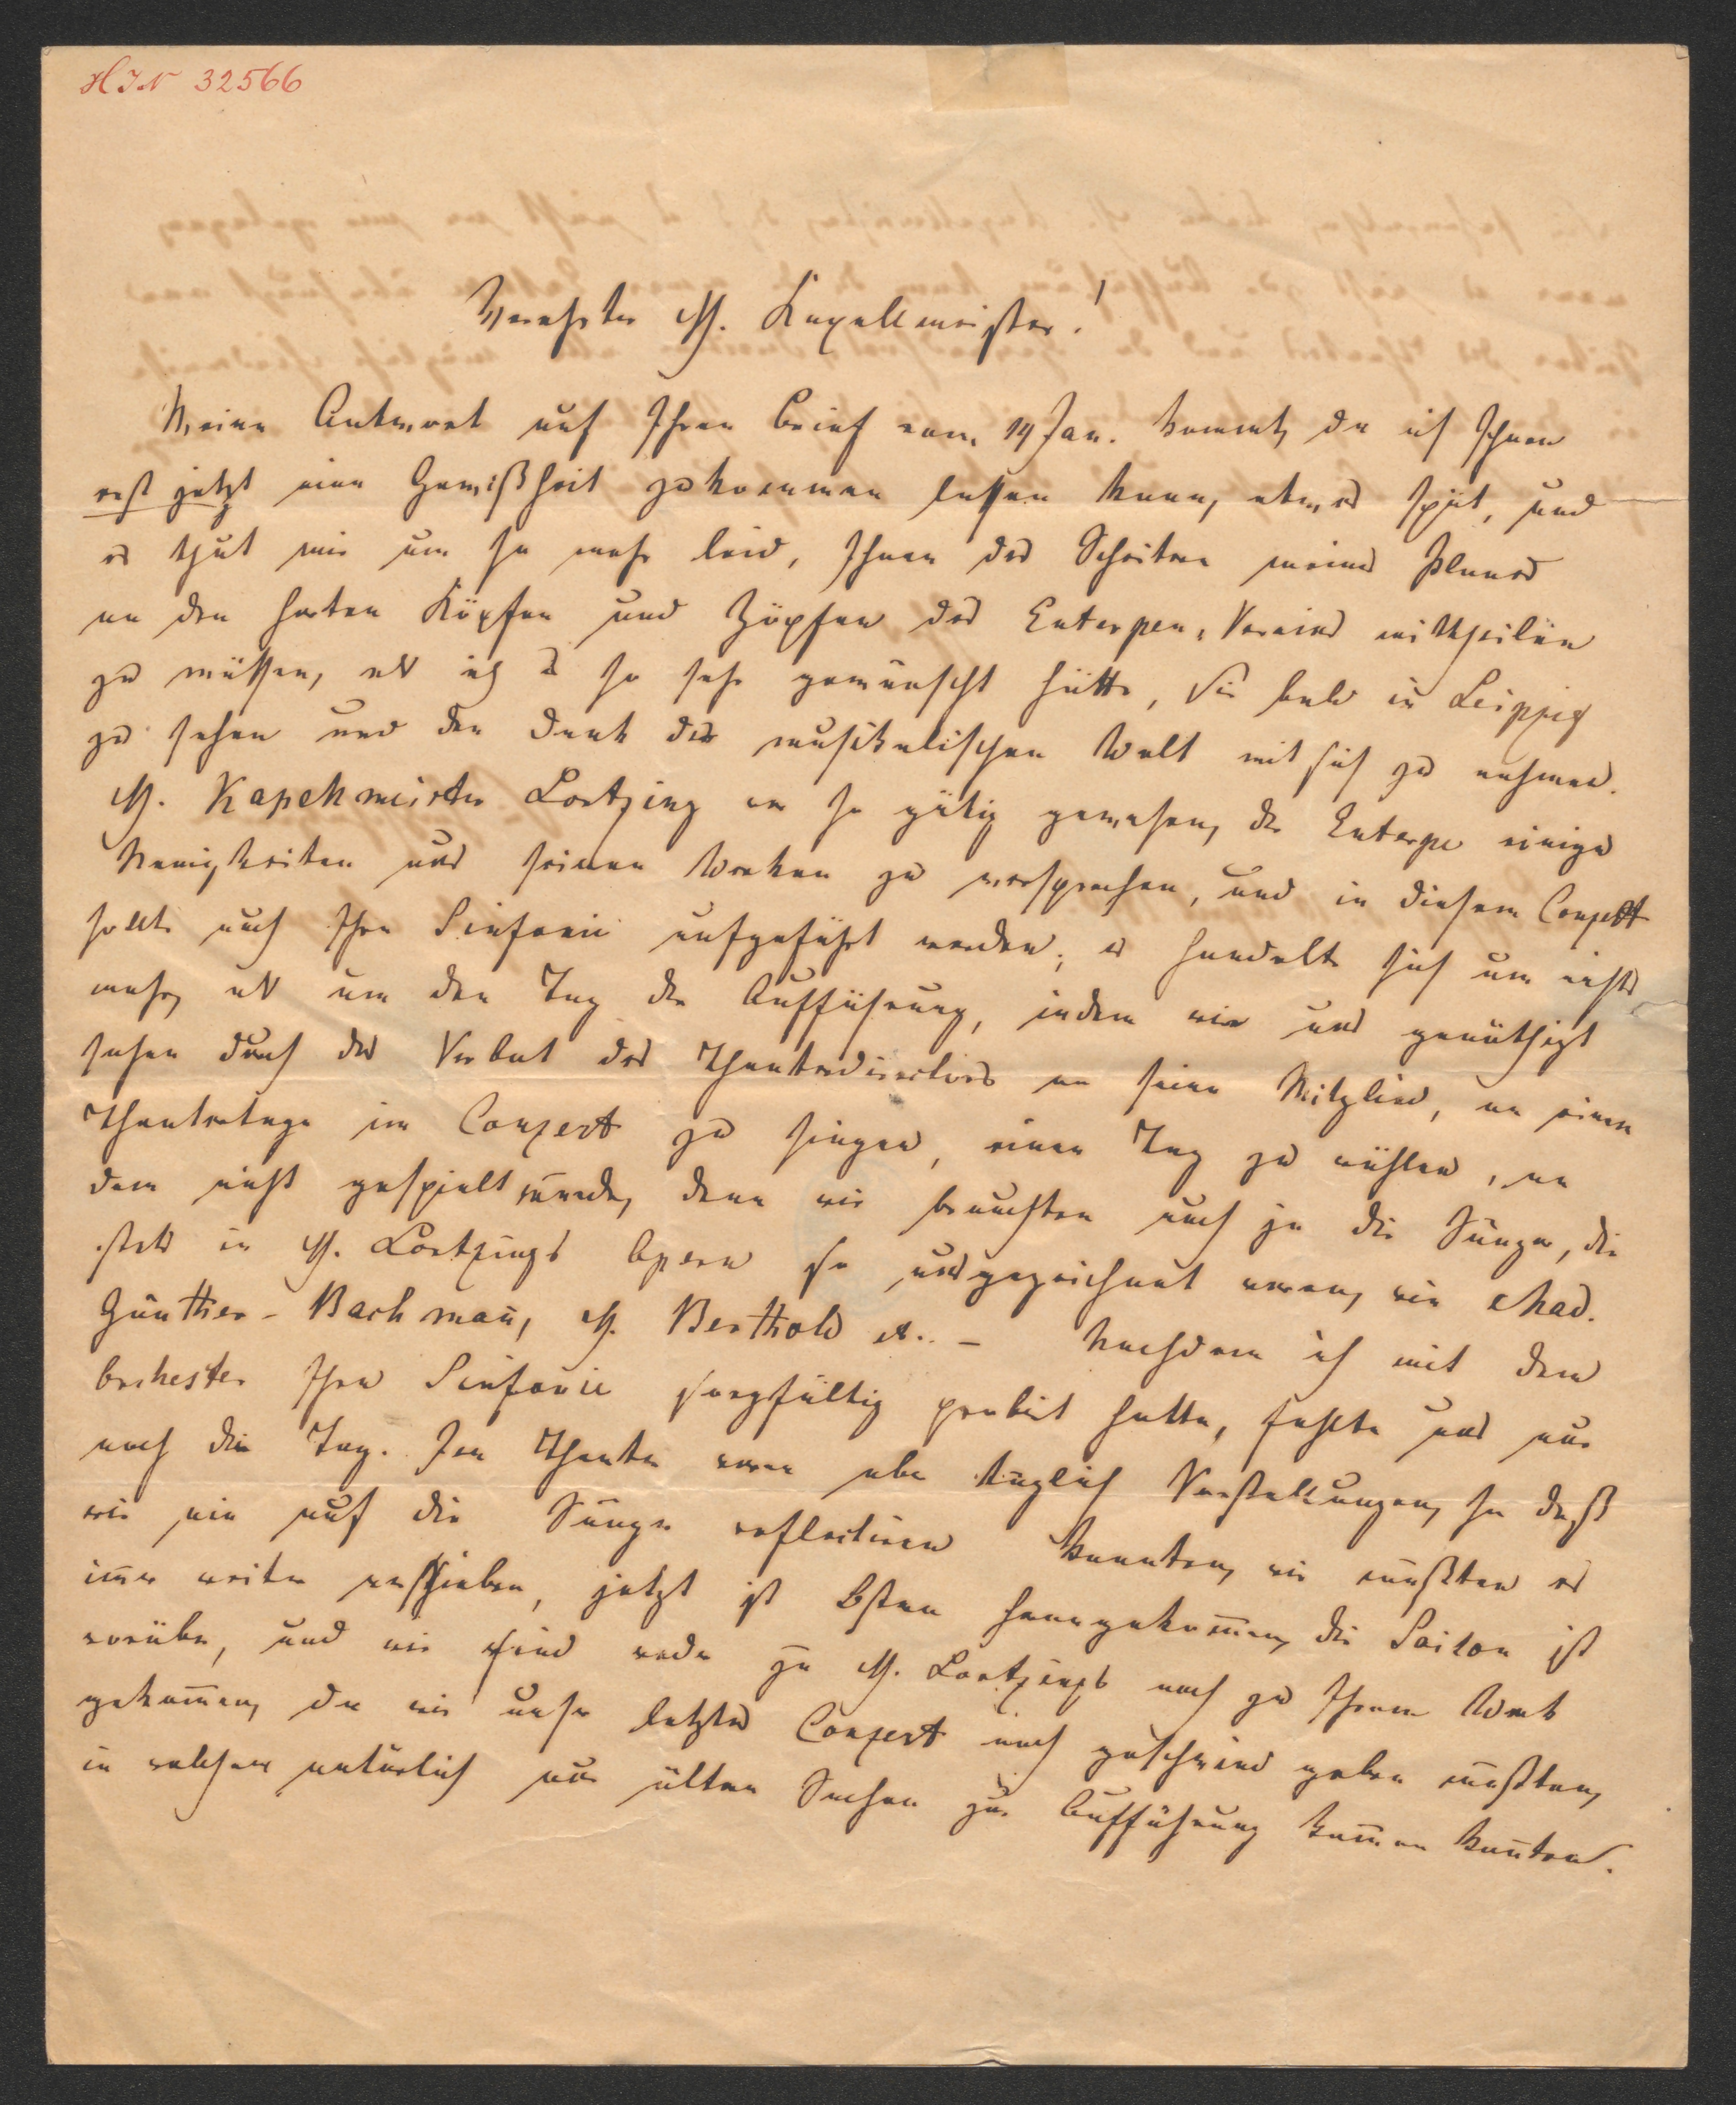 HIN 32566
Verehrter H. Kapellmeister!
Meine Antwort auf Ihren Brief vom 14 Jan. kommt, da ich Ihnen
erst jetzt eine Gewißheit zukommen lassen kann, etwas spät, und
es thut mir um so mehr leid, Ihnen das Scheitern meines Planes
an den harten Köpfen und Zöpfen des Euterpen-Vereins mittheilen
zu müssen, als ich es so sehr gewünscht hätte, Sie bald in Leipzig
zu sehen und den Dank der musikalischen Welt mit sich zu nehmen.
H. Kapellmeister Lortzing war so gütig gewesen, der Euterpe einige
Neuigkeiten aus seinen Werken zu versprechen, und in diesem Conzert
sollte auch Ihre Sinfonie aufgeführt werden; es handelte sich um nichts
mehr, als um den Tag der Aufführung, indem wir uns genöthigt
sahen durch das Verbot des Theaterdirectors an seine Mitglied, an einem
Theatertage im Conzert zu singen, einen Tag zu wählen, an
dem nicht gespielt wurde, denn wir brauchten auch ja die Sänger, die
stets in H. Lortzings Opern so ausgezeichnet waren, wie Mad.
Günther-Bachmañ, H. Berthold etc. – Nachdem ich mit dem
Orchester Ihre Sinfonie sorgfältig probirt hatte, fehlte uns nur
noch der Tag. Im Theater waren aber täglich Vorstellungen, so daß
wir nie auf die Sänger reflectiren konnten, wir mußten es
im̄er weiter verschieben, jetzt ist Ostern herangekom̄en, die Saison ist
vorüber, und wir sind weder zu H. Lortzings noch zu Ihrem Werk
gekom̄en, da wir unser letztes Conzert noch geschwind geben mußten,
in welchem natürlich nur ältere Sachen zur Aufführung kom̄en kon̄ten.